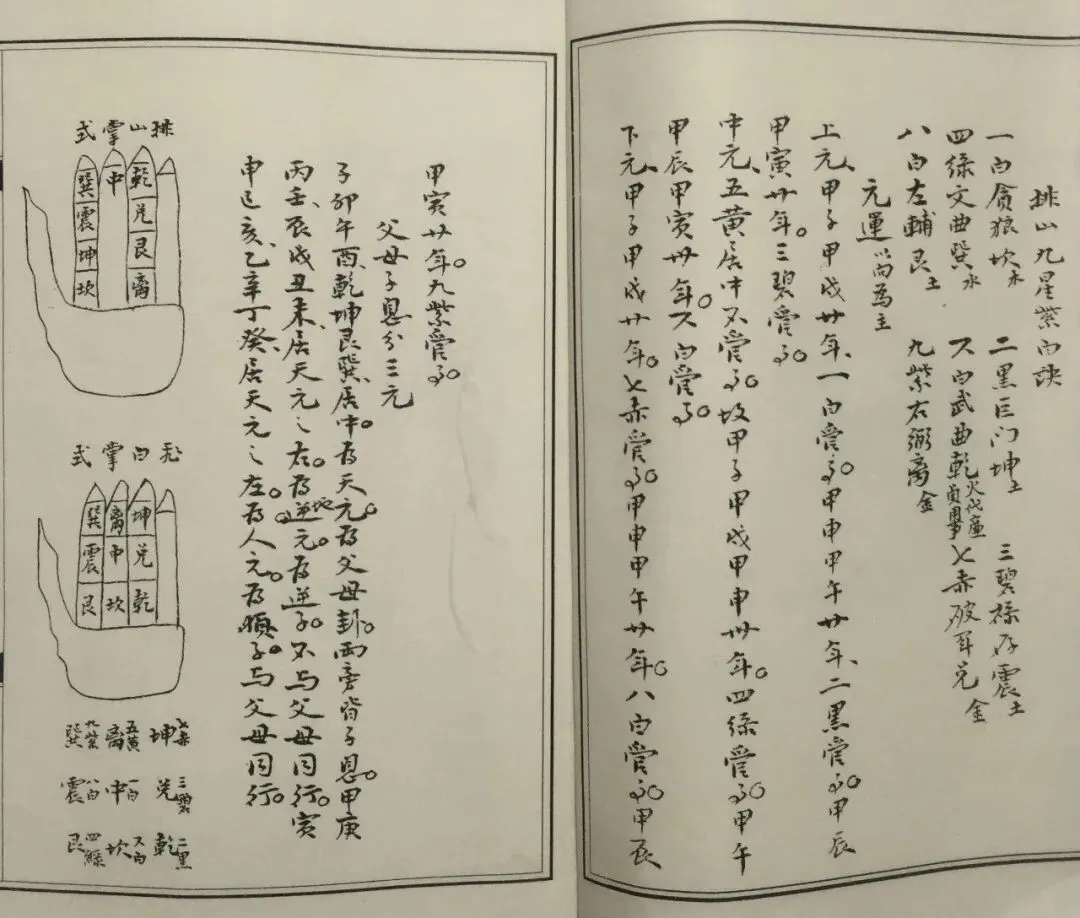 排山九星紫白訣
一白贪狼坎水 二黑巨门坤土 三碧禄存震土
四緑文曲巽水 六白武曲乾 火代廉貞用事 七赤破军兑金
八白左輔艮土 九紫右弼离金
元運 以向為主
上元、甲子甲戌廿年、一白管局。甲申甲午廿年、二黑管局。甲辰
甲寅廿年。三碧管局
中元、五黄居中不管局。故甲子甲戌甲申卅年。四緑管局。甲午
甲辰甲寅卅年。六白管局
下元、甲子甲戌廿年。七赤管局。甲申甲午廿年。八白管局。甲辰
甲寅廿年。九紫管局
父母子息分三元
子卯午酉、乾坤艮巽、居中。为天元。为父母卦。两旁皆子息。甲庚
丙壬、辰戌丑未、居天元之右。为地元。为逆子。不与父母同行。寅
申巳亥、乙辛丁癸、居天元之左。为人元。为順子。与父母同行。
排山掌式
乾 中 巽
兑 震
艮 坤
离 坎
飛白掌式
坤 离 巽
兑 中 震
乾 坎 艮
坤七赤 离五黄 巽九紫
兑三碧 中一白 震八白
乾二黑 坎六白 艮四緑